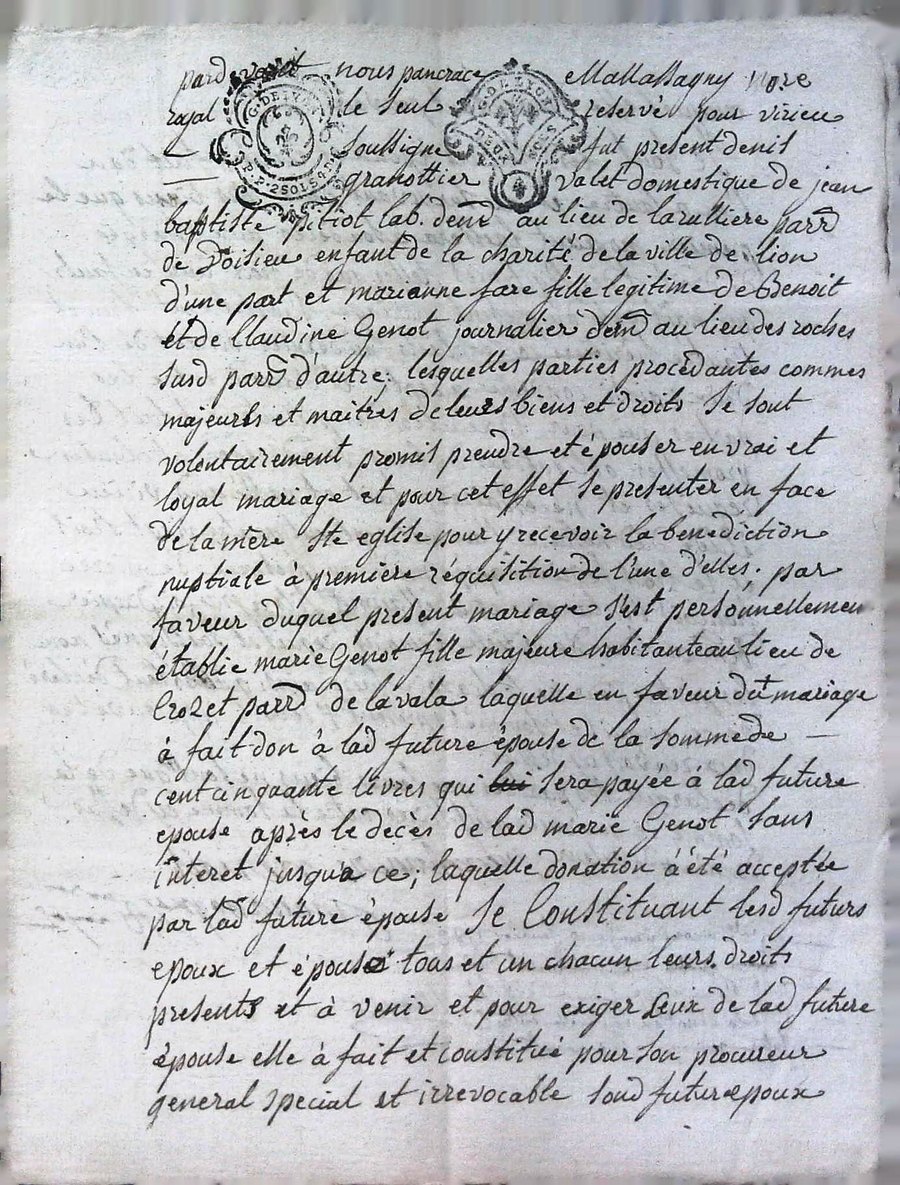 pard.t vant nous pancrace Mallassagny nore
royal le seul reservé pour virieu
soussigne fut present denis
granottier valet domestique de jean
baptiste pitiot lab. demt au lieu de larulliere parr
de Doisieu enfant de la charité de la ville de lion
d'une part et marianne fare fille legitime de Benoit
et de Claudine Genot journalier demt au lieu des roches
susd parr d'autre; lesquelles parties procedantes commes
majeurs et maitres de leurs biens et droits se sont
volontairement promis prendre et épouser en vrai et
loyal mariage et pour cet effet se presenter en face
de la mere ste eglise pour y recevoir la benediction
nuptiale à premiere réquisition de l'une d'elles. par
faveur duquel present mariage s'est personnellemen
établie marie Genot fille majeure habitante au lieu de
Crozet parr de lavala laquelle en faveur dut mariage
à fait don à lad future épouse de la somme de
cent cinquante livres qui lui sera payée à lad future
epouse après le decès de lad marie Genot sans
interet jusqu'a ce; laquelle donation à été acceptée
par lad future épouse se Constituant lesd futurs
epoux et épouse tous et un chacun leurs droits
presents et à venir et pour exiger ceux de lad future
épouse elle à fait et constitué pour son procureur
general special et irrevocable sond futur epoux
G. DE LYON
G. DE LYON
DEUX S
4